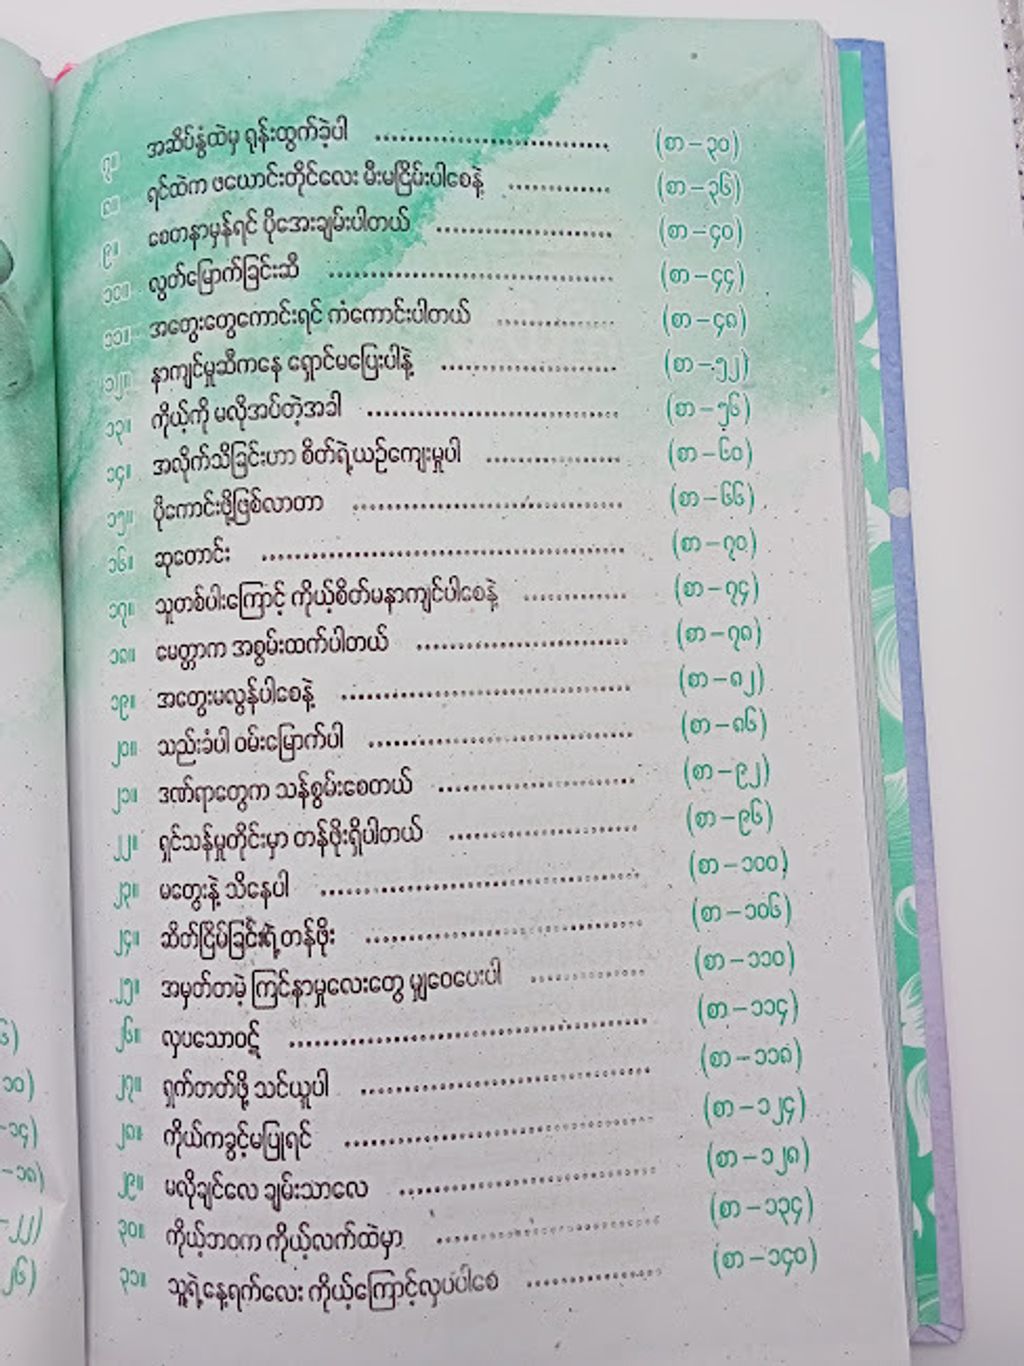 ၇။ အဆိပ်နွံထဲမှ ရုန်းထွက်ခဲ့ပါ ........................ (စာ – ၃၀)
၈။ ရင်ထဲက ဖယောင်းတိုင်လေး မီးမငြိမ်းပါစေနဲ့ ............ (စာ – ၃၆)
၉။ စေတနာမှန်ရင် ပိုအေးချမ်းပါတယ် .................... (စာ – ၄၀)
၁၀။ လွတ်မြောက်ခြင်းဆီ ................................ (စာ – ၄၄)
၁၁။ အတွေးတွေကောင်းရင် ကံကောင်းပါတယ် .............. (စာ – ၄၈)
၁၂။ နာကျင်မှုဆီကနေ ရှောင်မပြေးပါနဲ့ .................... (စာ – ၅၂)
၁၃။ ကိုယ့်ကို မလိုအပ်တဲ့အခါ ............................ (စာ – ၅၆)
၁၄။ အလိုက်သိခြင်းဟာ စိတ်ရဲ့ယဉ်ကျေးမှုပါ ................ (စာ – ၆၀)
၁၅။ ပိုကောင်းဖို့ဖြစ်လာတာ .............................. (စာ – ၆၆)
၁၆။ ဆုတောင်း ........................................ (စာ – ၇၀)
၁၇။ သူတစ်ပါးကြောင့် ကိုယ့်စိတ်မနာကျင်ပါစေနဲ့ ............ (စာ – ၇၄)
၁၈။ မေတ္တာက အစွမ်းထက်ပါတယ် ........................ (စာ – ၇၈)
၁၉။ အတွေးမလွန်ပါစေနဲ့ ................................ (စာ – ၈၂)
၂၀။ သည်းခံပါ ဝမ်းမြောက်ပါ .............................. (စာ – ၈၆)
၂၁။ ဒဏ်ရာတွေက သန်စွမ်းစေတယ် ...................... (စာ – ၉၂)
၂၂။ ရှင်သန်မှုတိုင်းမှာ တန်ဖိုးရှိပါတယ် .................... (စာ – ၉၆)
၂၃။ မတွေးနဲ့ သိနေပါ .................................. (စာ – ၁၀၀)
၂၄။ ဆိတ်ငြိမ်ခြင်းရဲ့တန်ဖိုး .............................. (စာ – ၁၀၆)
၂၅။ အမှတ်တမဲ့ ကြင်နာမှုလေးတွေ မျှဝေပေးပါ ............ (စာ – ၁၁၀)
၂၆။ လှပသောဝဋ် ...................................... (စာ – ၁၁၄)
၂၇။ ရှက်တတ်ဖို့ သင်ယူပါ ................................ (စာ – ၁၁၈)
၂၈။ ကိုယ်ကခွင့်မပြုရင် .................................. (စာ – ၁၂၄)
၂၉။ မလိုချင်လေ ချမ်းသာလေ ............................ (စာ – ၁၂၈)
၃၀။ ကိုယ့်ဘဝက ကိုယ့်လက်ထဲမှာ ........................ (စာ – ၁၃၄)
၃၁။ သူ့ရဲ့နေ့ရက်လေး ကိုယ့်ကြောင့်လှပပါစေ .............. (စာ – ၁၄၀)